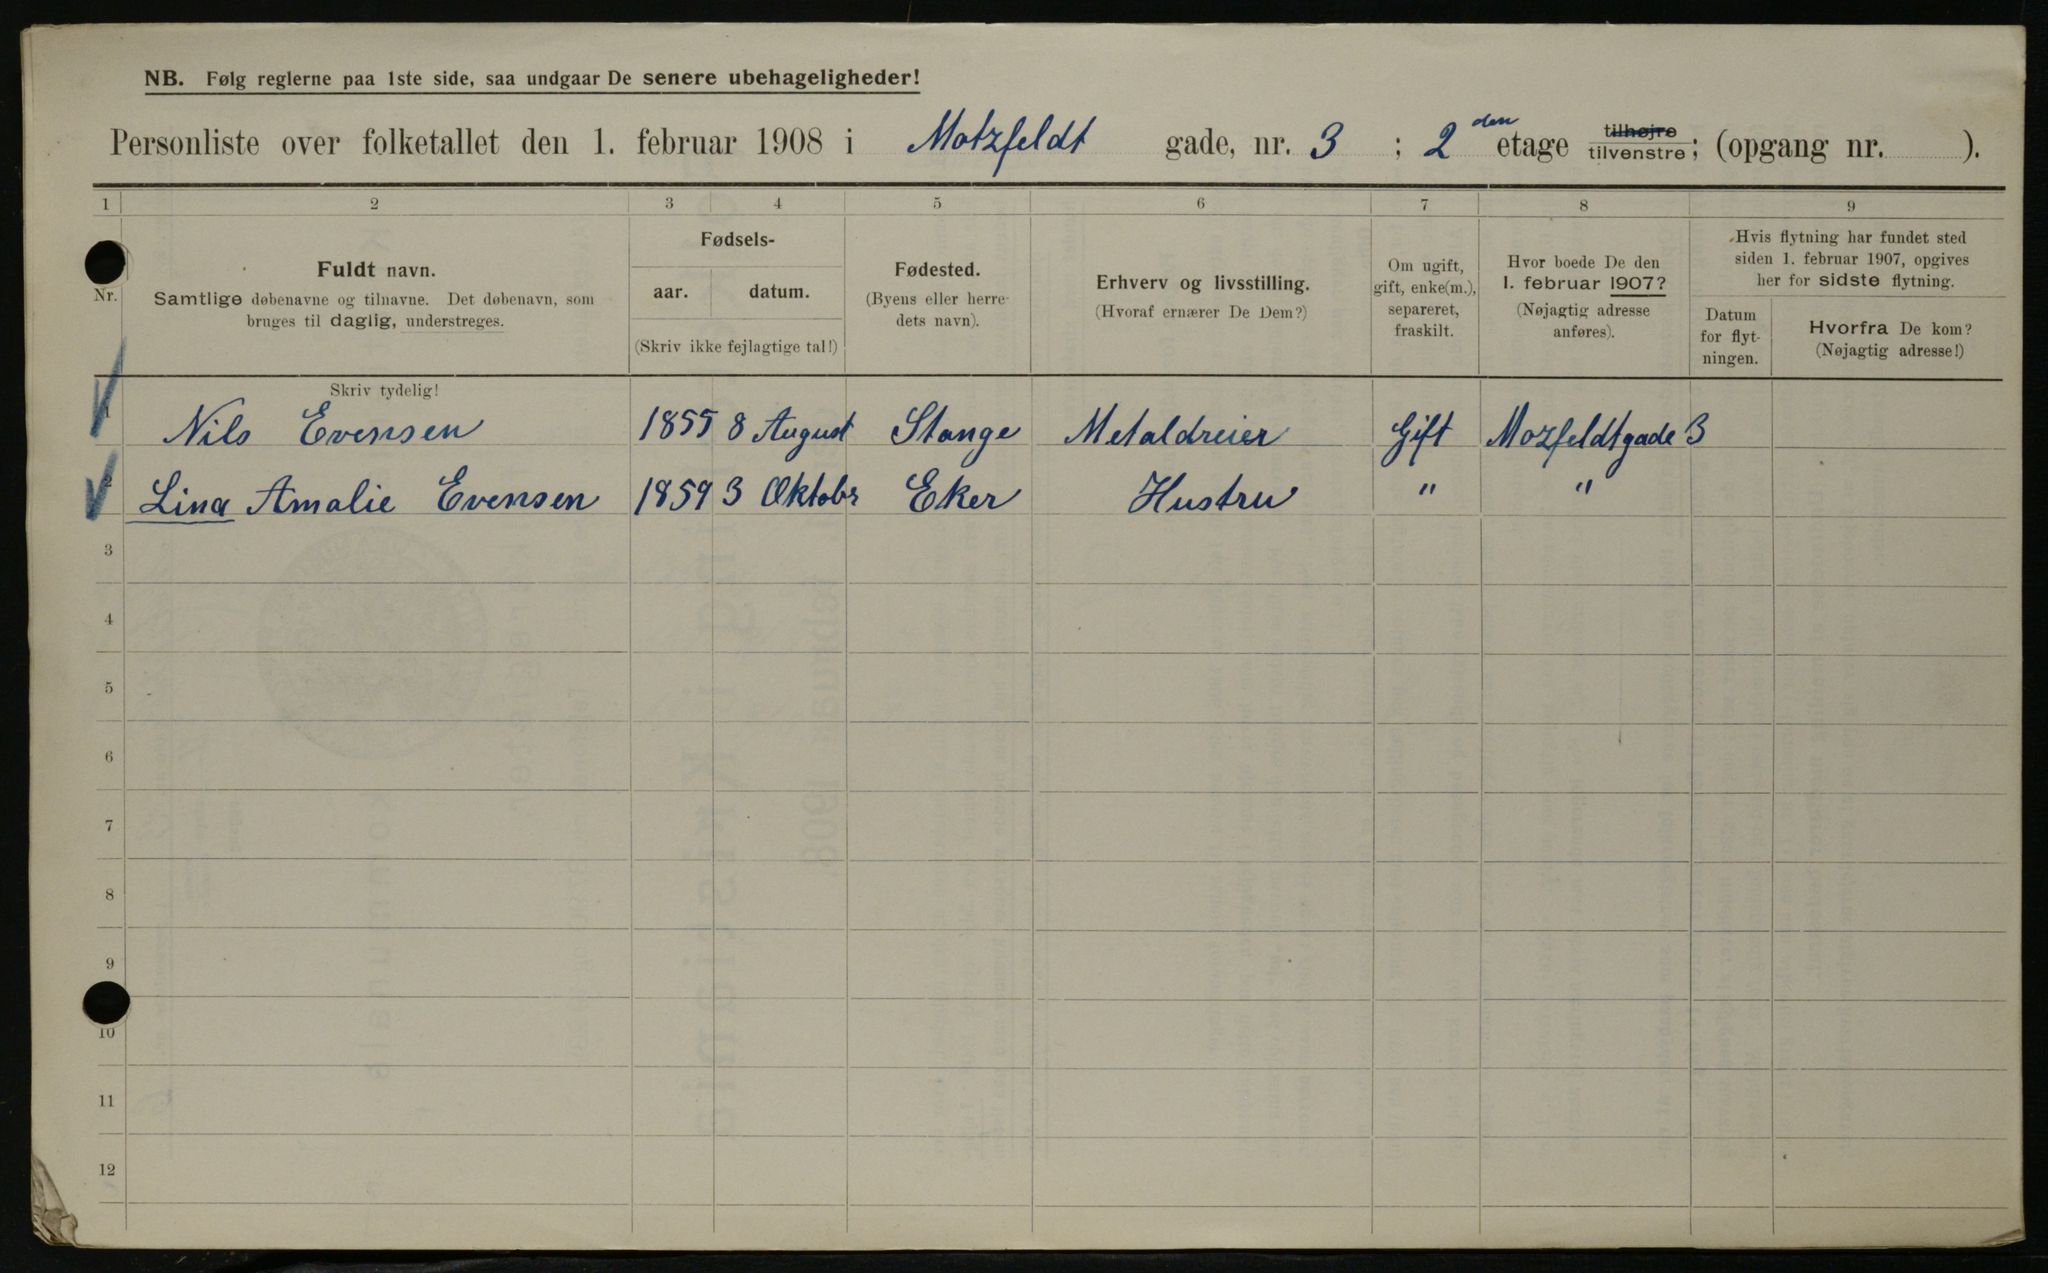 NB. Følg reglerne paa 1ste side, saa undgaar De senere ubehageligheder!
Personliste over folketallet den 1. februar 1908 i Motzfeldt gade, nr. 3 ; 2 den etage tilhøjre tilvenstre; (opgang nr. ).
1 2 3 4 5 6 7 8 9
Nr.
Fuldt navn.
Samtlige døbenavne og tilnavne. Det døbenavn, som
bruges til daglig, understreges.
Skriv tydelig!
Fødsels-
aar. datum.
(Skriv ikke fejlagtige tal!)
Fødested.
(Byens eller herre-
dets navn).
Erhverv og livsstilling.
(Hvoraf ernærer De Dem?)
Om ugift,
gift, enke(m.),
separeret,
fraskilt.
Hvor boede De den
1. februar 1907?
(Nøjagtig adresse
anføres).
Hvis flytning har fundet sted
siden 1. februar 1907, opgives
her for sidste flytning.
Datum
for flyt-
ningen.
Hvorfra De kom?
(Nøjagtig adresse!)
1 Nils Evensen 1855 8 August Stange Metaldreier Gift Mozfeldtgade 3
2 Lina Amalie Evensen 1859 3 Oktobr Eker Hustru " "
3
4
5
6
7
8
9
10
11
12